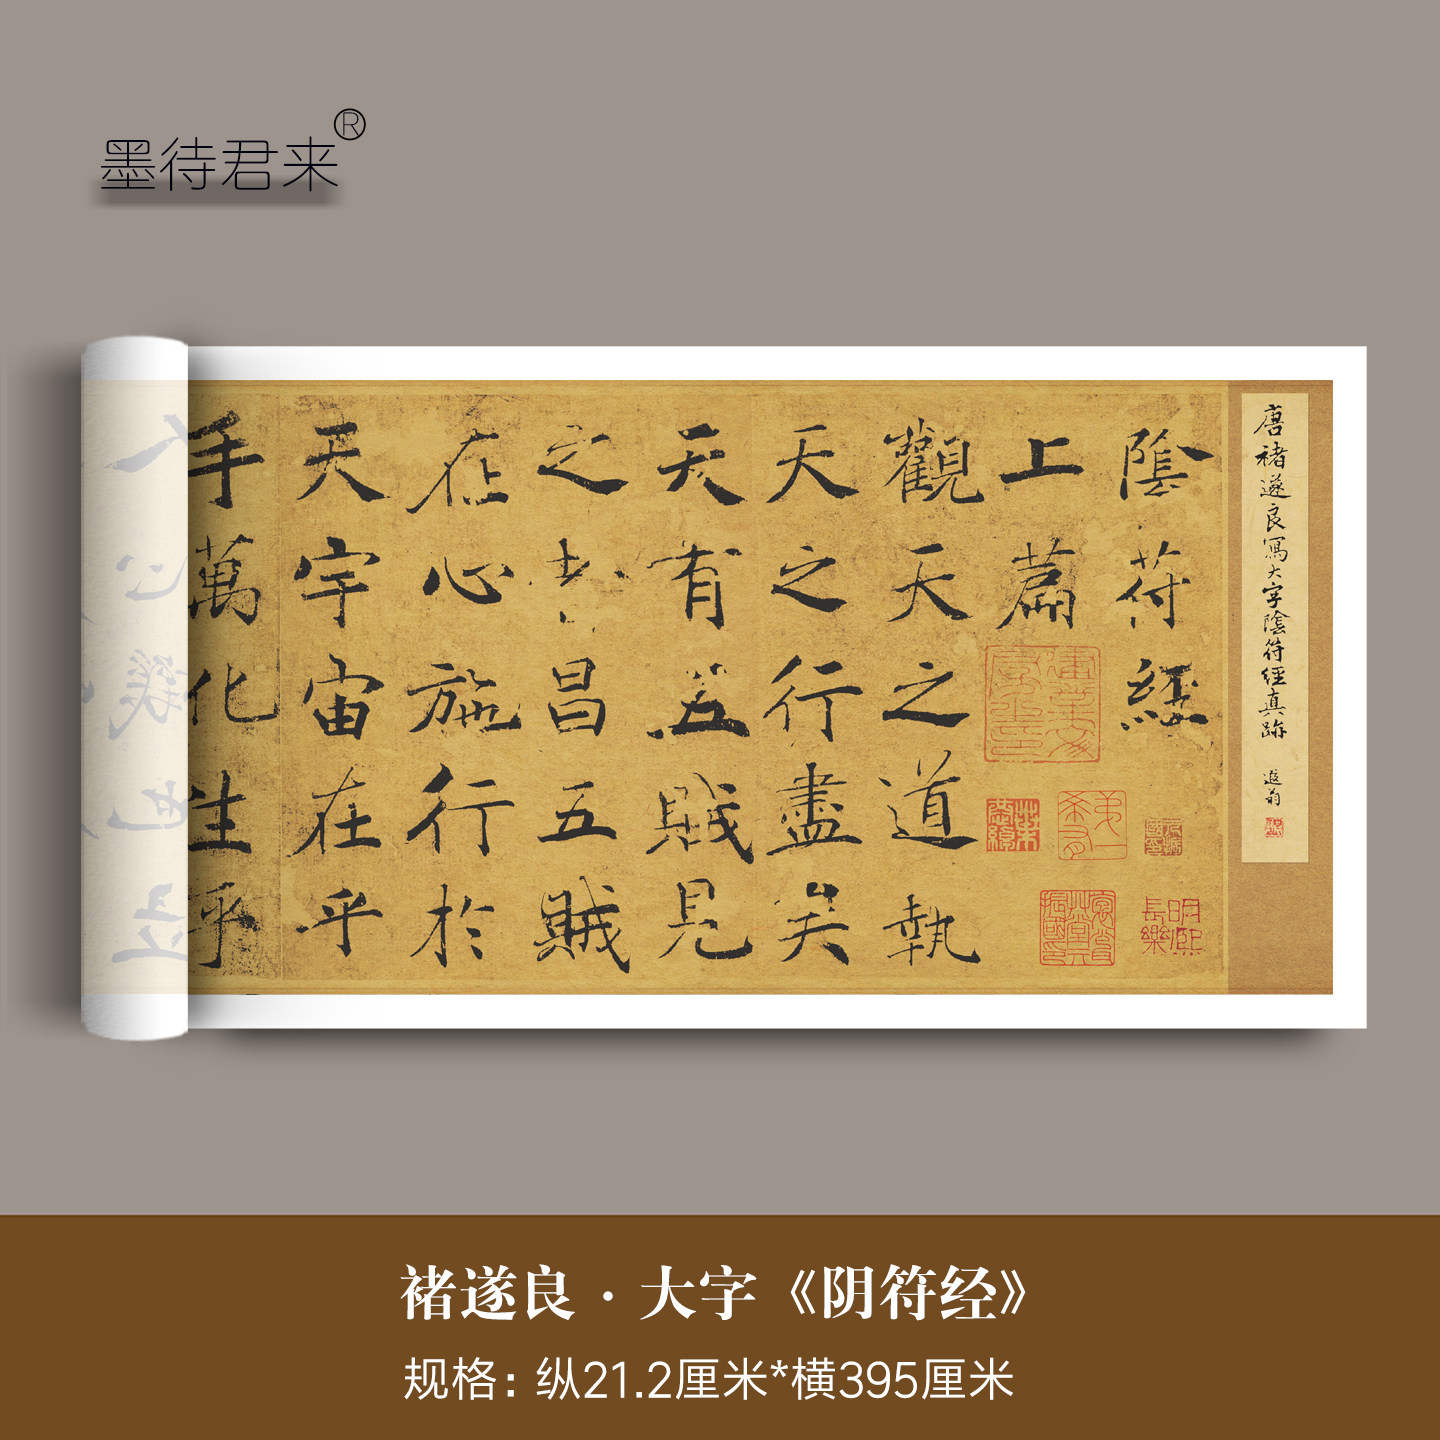 墨待君来®
唐褚遂良寫大字陰符經真跡
遐翁
陰符經
上篇
觀天之道執
天之行盡矣
天有五賊見
之者昌五賊
在心施行於
天宇宙在乎
手萬化生乎
褚遂良·大字《阴符经》
规格：纵21.2厘米*横395厘米